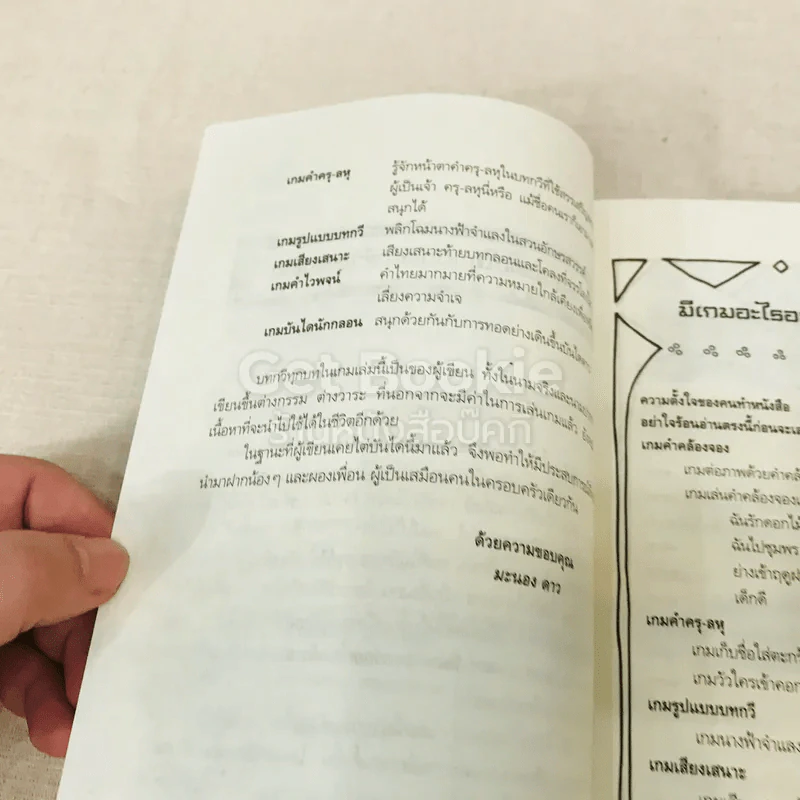 เกมคำครุ-ลหุ รู้จักหน้าตาคำครุ-ลหุในบทกวีที่ใช้
ผู้เป็นเจ้า ครุ-ลหุนี่หรือ แม้ชื่อคนเราก็
สนุกได้
เกมรูปแบบบทกวี พลิกโฉมนางฟ้าจำแลงในสวนอักษรสวรรค์
เกมเสียงเสนาะ เสียงเสนาะท้ายบทกลอนและโคลงที่
เกมคำไวพจน์ คำไทยมากมายที่ความหมายใกล้เคียง
เลี่ยงความจำเจ
เกมบันไดนักกลอน สนุกด้วยกันกับการทอดย่างเดินขึ้นบันได
บทกวีทุกบทในเกมเล่มนี้เป็นของผู้เขียน ทั้งในนามจริงและ
เขียนขึ้นต่างกรรม ต่างวาระ ที่นอกจากจะมีค่าในการเล่นเกมแล้ว
เนื้อหาที่จะนำไปใช้ได้ในชีวิตอีกด้วย
ในฐานะที่ผู้เขียนเคยไต่บันไดนี้มาแล้ว จึงพอทำให้มีประสบการณ์
นำมาฝากน้องๆ และผองเพื่อน ผู้เป็นเสมือนคนในครอบครัวเดียวกัน
ด้วยความขอบคุณ
มะนอง ดาว
Get Bookie
ร้านหนังสือบุ๊คกี้
มีเกมอะไร
ความตั้งใจของคนทำหนังสือ
อย่าใจร้อนอ่านตรงนี้ก่อนจะ
เกมคำคล้องจอง
เกมต่อภาพด้วยคำ
เกมเล่นคำคล้องจอง
ฉันรักดอกไม้
ฉันไปชุมพร
ย่างเข้าฤดู
เด็กดี
เกมคำครุ-ลหุ
เกมเก็บชื่อใส่
เกมวัวใครเข้าคอก
เกมรูปแบบบทกวี
เกมนางฟ้าจำแลง
เกมเสียงเสนาะ